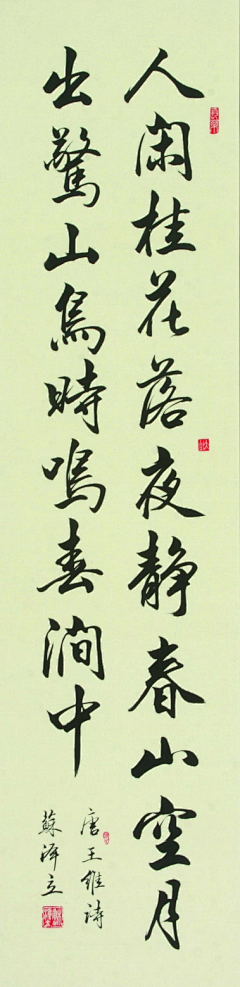 人閑桂花落夜静春山空月
出驚山鳥時鳴春澗中
唐王維詩
蘇澤立